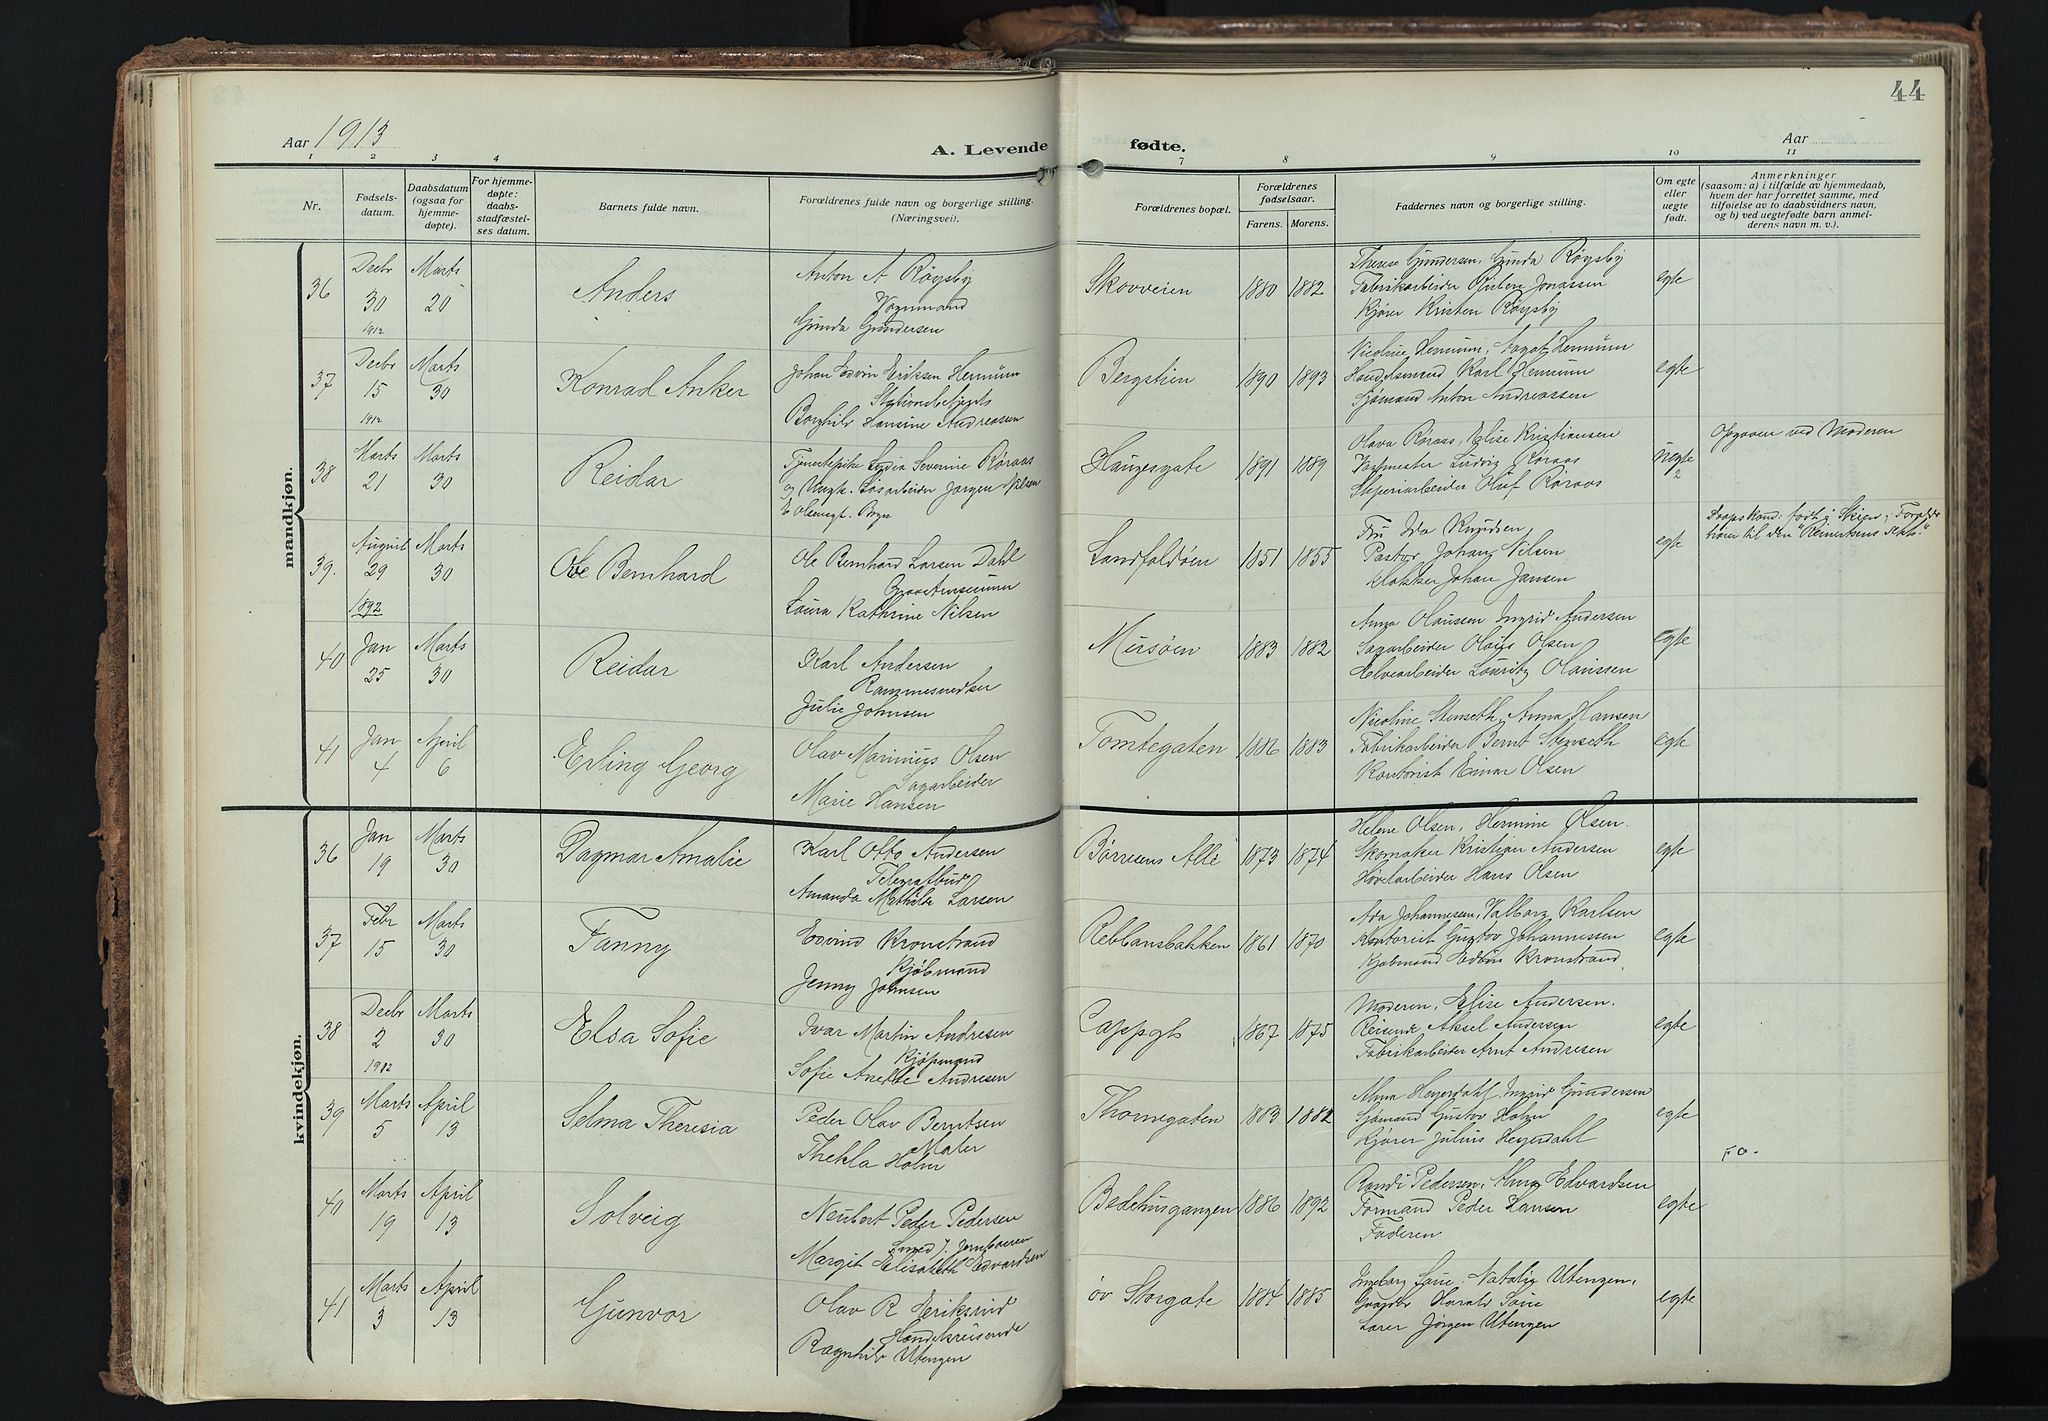 44
Aar 1913
A. Levende fødte.
Aar
1 2 3 4 7 8 9 10 11
Nr.
Fødsels-
datum.
Daabsdatum
(ogsaa for
hjemme-
døpte).
For hjemme-
døpte:
daabs-
stadfæstel-
ses datum.
Barnets fulde navn.
Forældrenes fulde navn og borgerlige stilling.
(Næringsvei).
Forældrenes bopæl.
Forældrenes
fødselsaar.
Farens. Morens.
Faddernes navn og borgerlige stilling.
Om egte
eller
uegte
født.
Anmerkninger
(saasom: a) i tilfælde av hjemmedaab,
hvem der har forrettet samme, med
tilføielse av to daabsvidners navn,
og b) ved uegtefødte barn anmel-
derens navn m. v.).
mandkjøn.
36
Decbr
30
1912
Marts
20
Anders
Anton A Røysby
Vognmand
Gunda Gundersen
Skovveien
1880 1882
Therese Gundersen, Gunda Røysby
Fabrikarbeider Jonassen
Kjører Kristen Røysby
egte
37
Decbr
15
1912
Marts
30
Konrad Anker
Johan Edvin Eriksen Hennum
Stationsbetjent
Borghild Hansine Andreassen
Bergstien
1890 1893
Nicoline Hennum, Dagot Hennum
Handelsmand Karl Hennum
Sjømand Anton Andreassen
egte
38
Marts
21
Marts
30
Reidar
Tjenestepike Lydia Severine Røraas
og Ungk. Løsarbeider Jørgen Nilsen
Haugesgate
1891 1889
Olava Røraas, Elise Kristiansen
Ludvig Røraas
Sliperiarbeider Oluf Røraas
uegte
2
Opgaven ved Moderen
39.
August
29
1892
Marts
30
Ole Bernhard
Ole Bernhard Larsen Dahl
Laura Kathrine Nilsen
Landfaldøen
1851 1855
Fru Ida Knudsen
Pastor Johan Nilsen
Klokker Johan Jansen
egte
født i Skien; Foræld
hører til den
40
Jan
25
Marts
30
Reidar
Karl Andersen
Rammesnedker
Julie Johnsen
Musøen
1883 1882
Anna Olaussen Ingrid Andersen
Sagarbeider Olaus Olsen
Elvearbeider Lauritz Olaussen
egte
41
Jan
4
April
6
Erling Georg
Olav Marinius Olsen
Sagarbeider
Marie Hansen
Tomtegaten
1886 1883
Nicoline Stenseth, Anna Hansen
Fabrikarbeider Bernt Stenseth
Kontorist Einar Olsen
egte
kvindekjøn.
36
Jan
19
Marts
30
Dagmar Amalie
Karl Otto Andersen
Telegrafbud
Amanda Mathilde Larsen
Børresens Allé
1873 1874
Helene Olsen, Hermine Olsen.
Skomaker Kristian Andersen
Høvlarbeider Hans Olsen
egte
37
Febr
15
Marts
30
Fanny
Edvind Kronstrand
Kjøbmand
Jenny Johnsen
Rebbansbakken
1861 1870
Ada Johannesen, Valborg Karlsen
Kontorist Gustav Johannessen
Kjøbmand Edvin Kronstrand.
egte
38
Decbr
2
1912
Marts
30
Elsa Sofie
Ivar Martin Andresen
Kjøpmand
Sofie Anette Andresen
Cappgt
1867 1875
Moderen, Elise Andersen.
Reisende Aksel Andersen
Fabrikarbeider Arnt Andresen
egte
39
Marts
5
April
13
Selma Theresia
Peder Olav Berntsen
Maler
Thekla Holm
Thornegaten
1883 1882
Alma Heyerdahl, Ingrid Gundersen
Sjømand Gustav Holm
Kjører Julius Heyerdahl
egte
40
Marts
19
April
13
Solveig
Neubert Peder Pedersen
Smed v. Jernbanen
Margit Elisabeth Edvardsen
Bedehusgangen
1886 1892
Randi Pedersen, Edvardsen
Formand Peder Hansen
Faderen
egte
41
Marts
3
April
13
Gunvor
Olav R Eriksrud
Handelsreisende
Ragnhild Utengen
øv Storgate
1884 1885
Ingeborg Löue, Natalia Utengen,
Harald Löue
Lærer Jørgen Utengen
egte